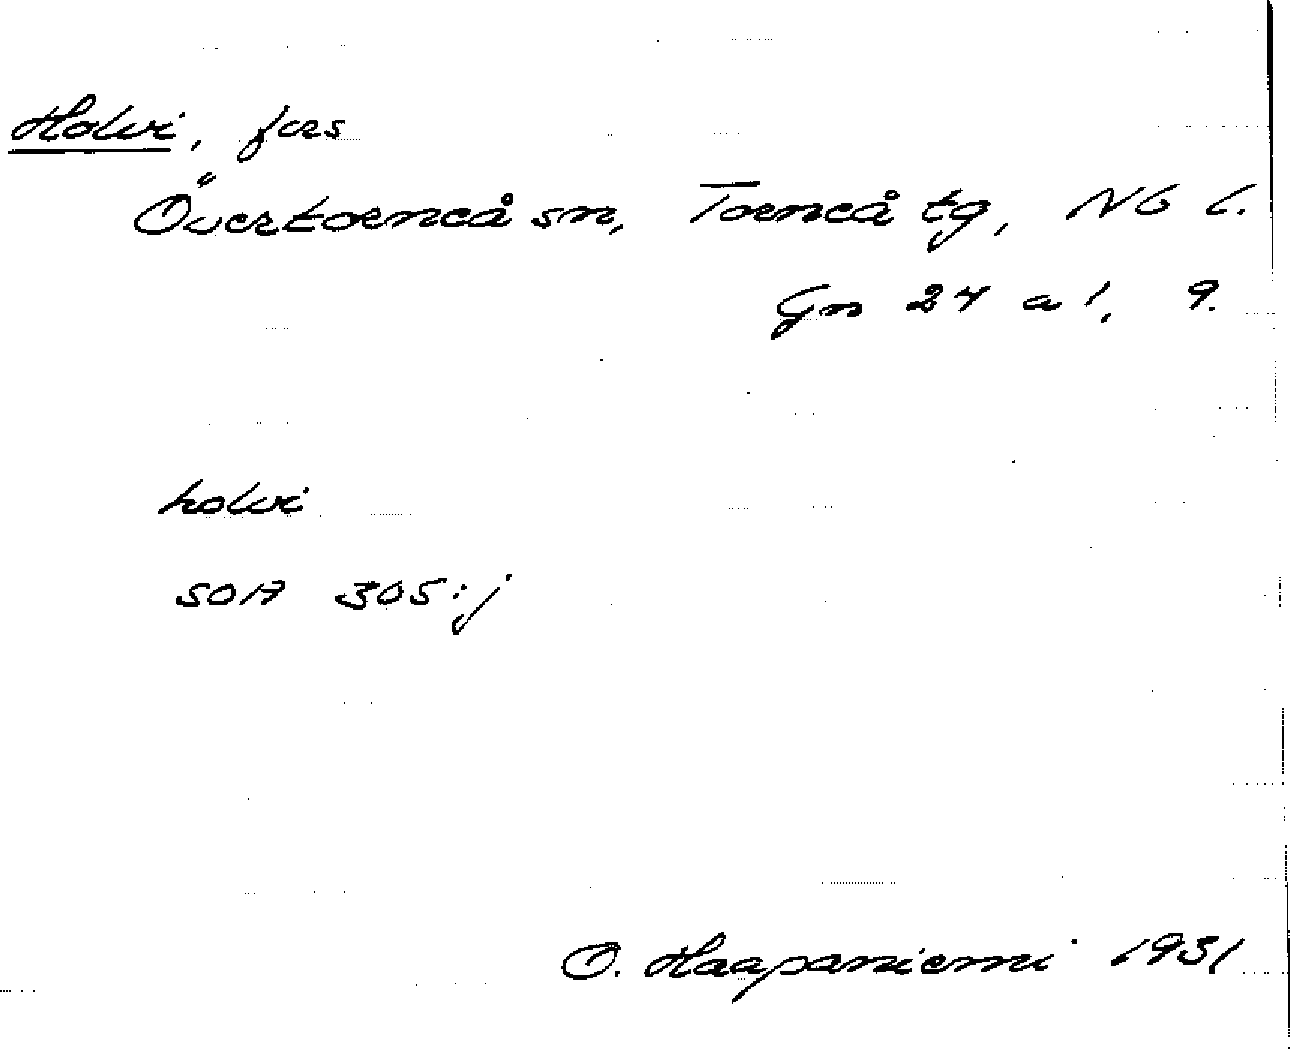 Holvi, fors
Övertorneå sn, Torneå tg, Nb l.
Gn 24 a 1, 9.
holvi
SOA 305:j
O. Haapaniemi 1931